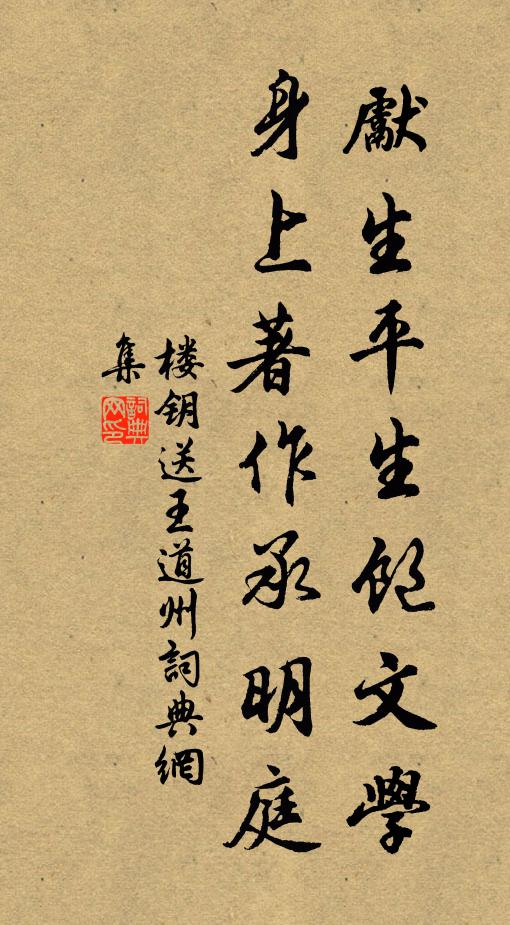 獻生平生飽文學
身上著作承明庭
楼钥送王道州詞典網
集
詞典網印